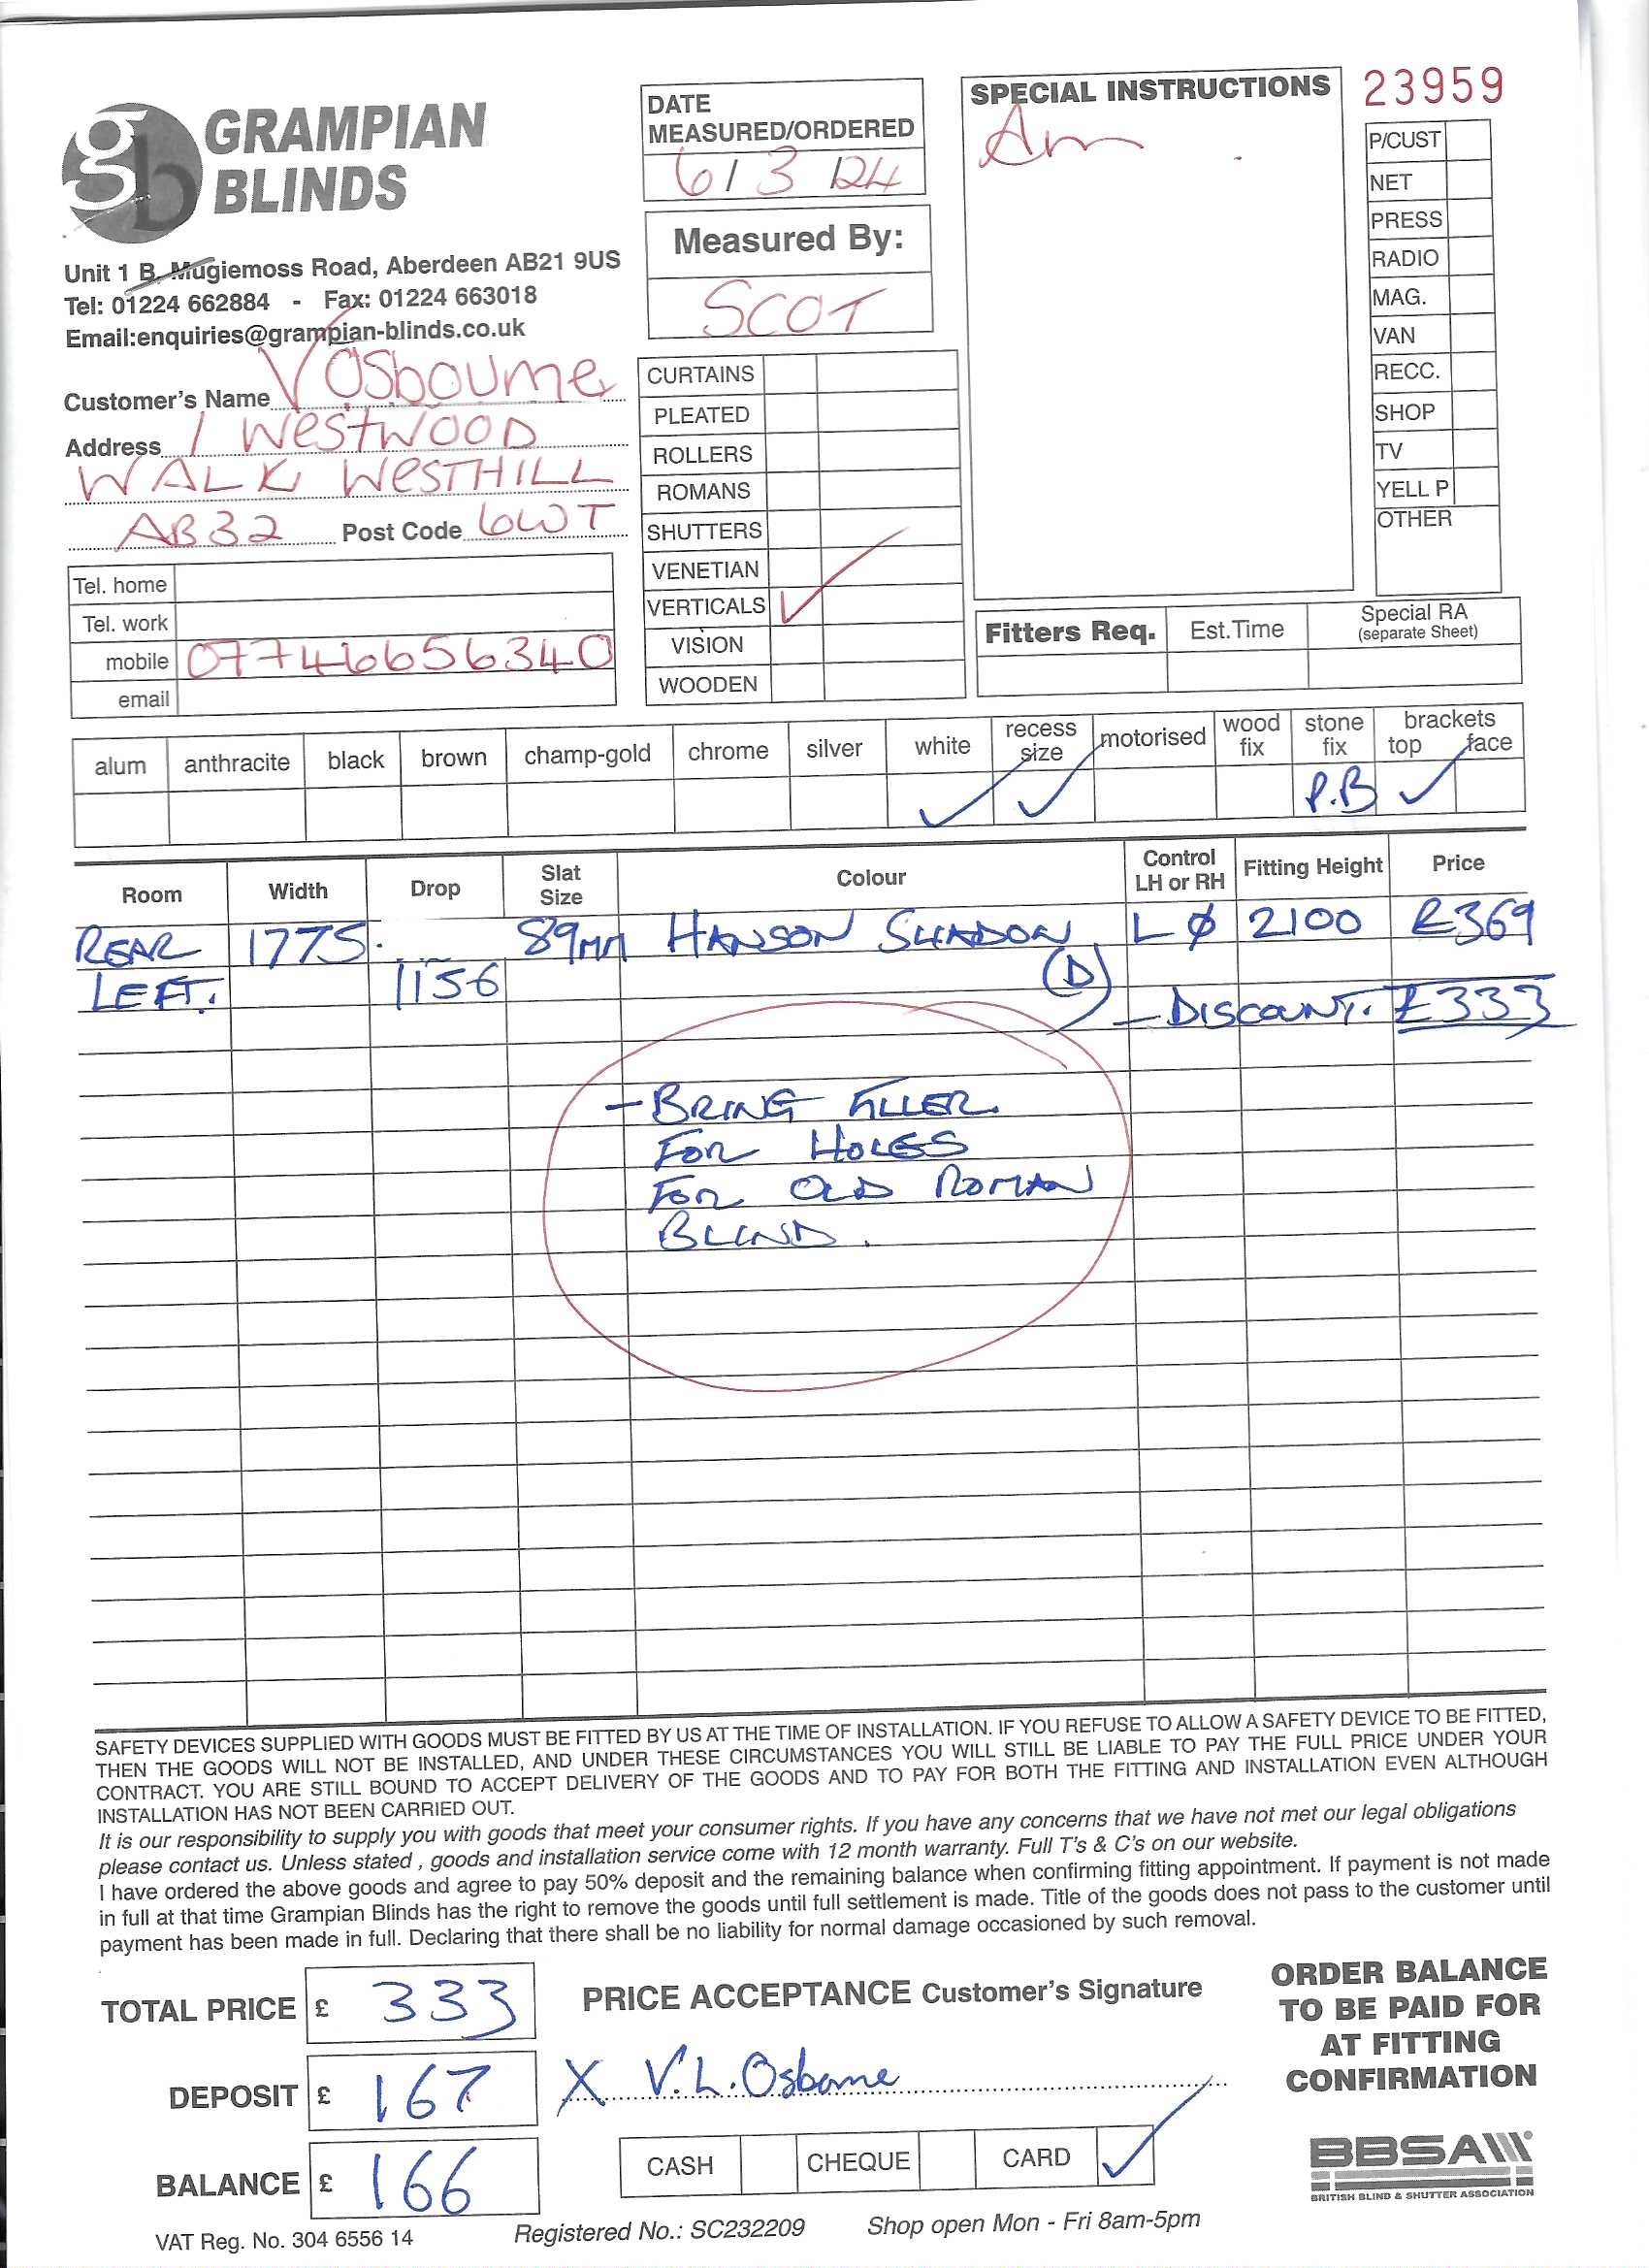 GRAMPIAN
BLINDS
Unit 1 B, Mugiemoss Road, Aberdeen AB21 9US
Tel: 01224 662884 - Fax: 01224 663018
Email:enquiries@grampian-blinds.co.uk
DATE
MEASURED/ORDERED
6/3/24
Measured By:
SCOT
SPECIAL INSTRUCTIONS
Am
23959
P/CUST
NET
PRESS
RADIO
MAG.
VAN
RECC.
SHOP
TV
YELL P
OTHER
Customer's Name V Osbourne
Address 1 WestWOOD
WALK WESTHILL
AB32 Post Code 6WT
Tel. home
Tel. work
mobile 07746656340
email
CURTAINS
PLEATED
ROLLERS
ROMANS
SHUTTERS
VENETIAN
VERTICALS ✓
VISION
WOODEN
Fitters Req. Est.Time Special RA
(separate Sheet)
alum anthracite black brown champ-gold chrome silver white recess size motorised wood fix stone fix brackets top face
✓ ✓ P.B ✓
Room Width Drop Slat Size Colour Control LH or RH Fitting Height Price
REAR 1775. 89mm HANSON SHADOW L Ø 2100 £369
LEFT. 1156 (D)
- DISCOUNT. £333
- BRING FILLER.
FOR HOLES
FOR OLD ROMAN
BLIND.
SAFETY DEVICES SUPPLIED WITH GOODS MUST BE FITTED BY US AT THE TIME OF INSTALLATION. IF YOU REFUSE TO ALLOW A SAFETY DEVICE TO BE FITTED,
THEN THE GOODS WILL NOT BE INSTALLED, AND UNDER THESE CIRCUMSTANCES YOU WILL STILL BE LIABLE TO PAY THE FULL PRICE UNDER YOUR
CONTRACT. YOU ARE STILL BOUND TO ACCEPT DELIVERY OF THE GOODS AND TO PAY FOR BOTH THE FITTING AND INSTALLATION EVEN ALTHOUGH
INSTALLATION HAS NOT BEEN CARRIED OUT.
It is our responsibility to supply you with goods that meet your consumer rights. If you have any concerns that we have not met our legal obligations
please contact us. Unless stated , goods and installation service come with 12 month warranty. Full T's & C's on our website.
I have ordered the above goods and agree to pay 50% deposit and the remaining balance when confirming fitting appointment. If payment is not made
in full at that time Grampian Blinds has the right to remove the goods until full settlement is made. Title of the goods does not pass to the customer until
payment has been made in full. Declaring that there shall be no liability for normal damage occasioned by such removal.
TOTAL PRICE £ 333
DEPOSIT £ 167
BALANCE £ 166
PRICE ACCEPTANCE Customer's Signature
X V.L.Osborne
CASH CHEQUE CARD ✓
ORDER BALANCE
TO BE PAID FOR
AT FITTING
CONFIRMATION
BBSA
BRITISH BLIND & SHUTTER ASSOCIATION
VAT Reg. No. 304 6556 14 Registered No.: SC232209 Shop open Mon - Fri 8am-5pm